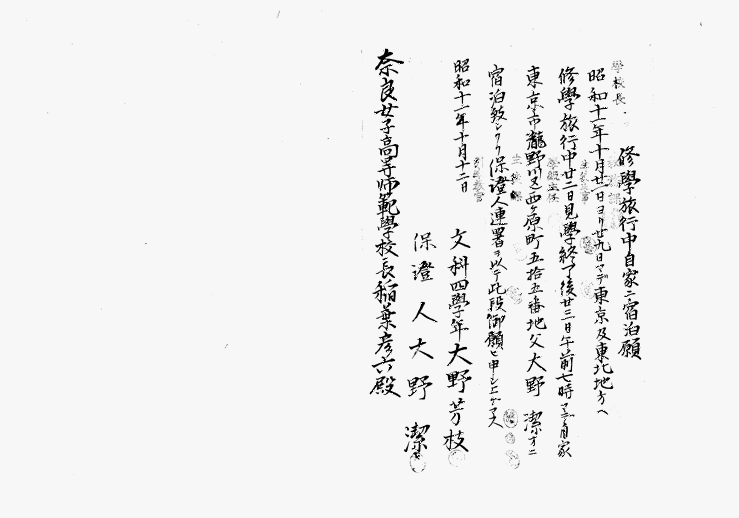 修學旅行中自家ニ宿泊願
昭和十一年十月廿一日ヨリ廿九日マデ東京及東北地方へ
修學旅行中廿二日見學終了後廿三日午前七時マデ自家
東京市瀧野川区西ヶ原町五拾五番地父大野潔方ニ
宿泊致シタク保證人連署ヲ以テ此段御願ヒ申シ上ゲマス
昭和十一年十月十二日
文科四學年大野芳枝
保證人大野潔
奈良女子高等師範學校長稲葉彦六殿
學校長
生徒主事
學級主任
生徒課